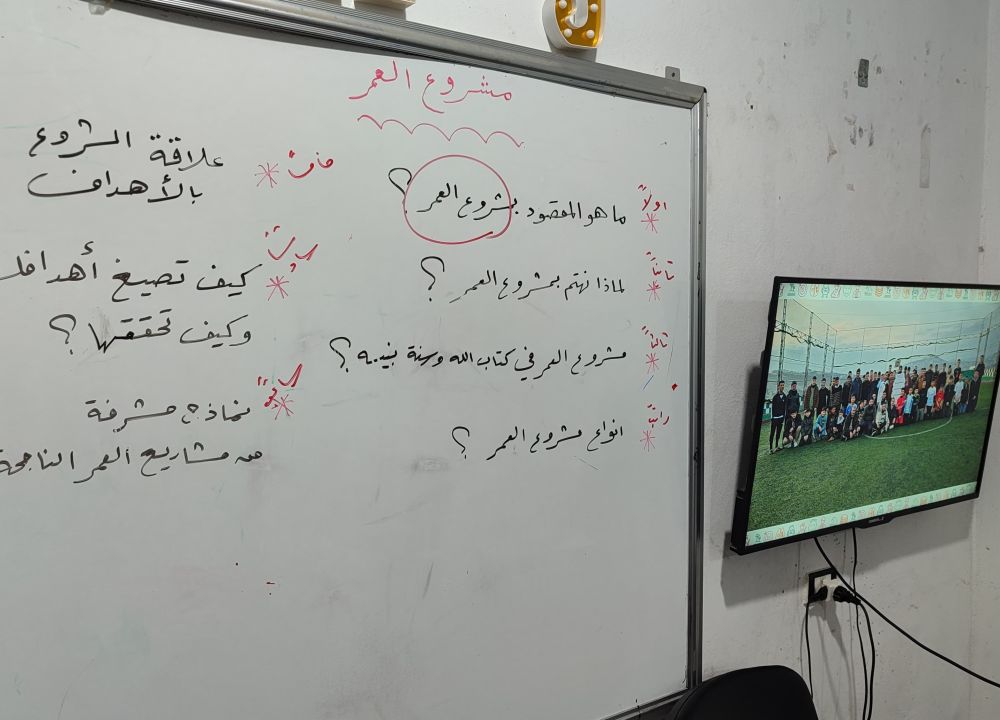 مشروع العمر
اولاً
ما هو المقصود بمشروع العمر ؟
ثانياً
لماذا نهتم بمشروع العمر ؟
ثالثاً
مشروع العمر في كتاب الله وسنة نبيه ؟
رابعاً
انواع مشروع العمر ؟
علاقة المشروع
بالأهداف
كيف تصيغ أهدافك
وكيف تحققها ؟
نماذج مشرفة
من مشاريع العمر الناجحة